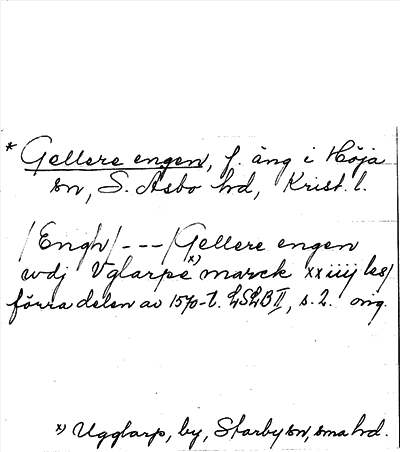 * Gellere engen, f. äng i Höja
sn, S. Åsbo hd, Krist. l.
/Engh/ --- /Gellere engen
wdj Vglarpe x) marck xxiiij les/
förra delen av 1570-t. LSLB II, s. 2. orig.
x) Ugglarp, by, Starby sn, sma hd.